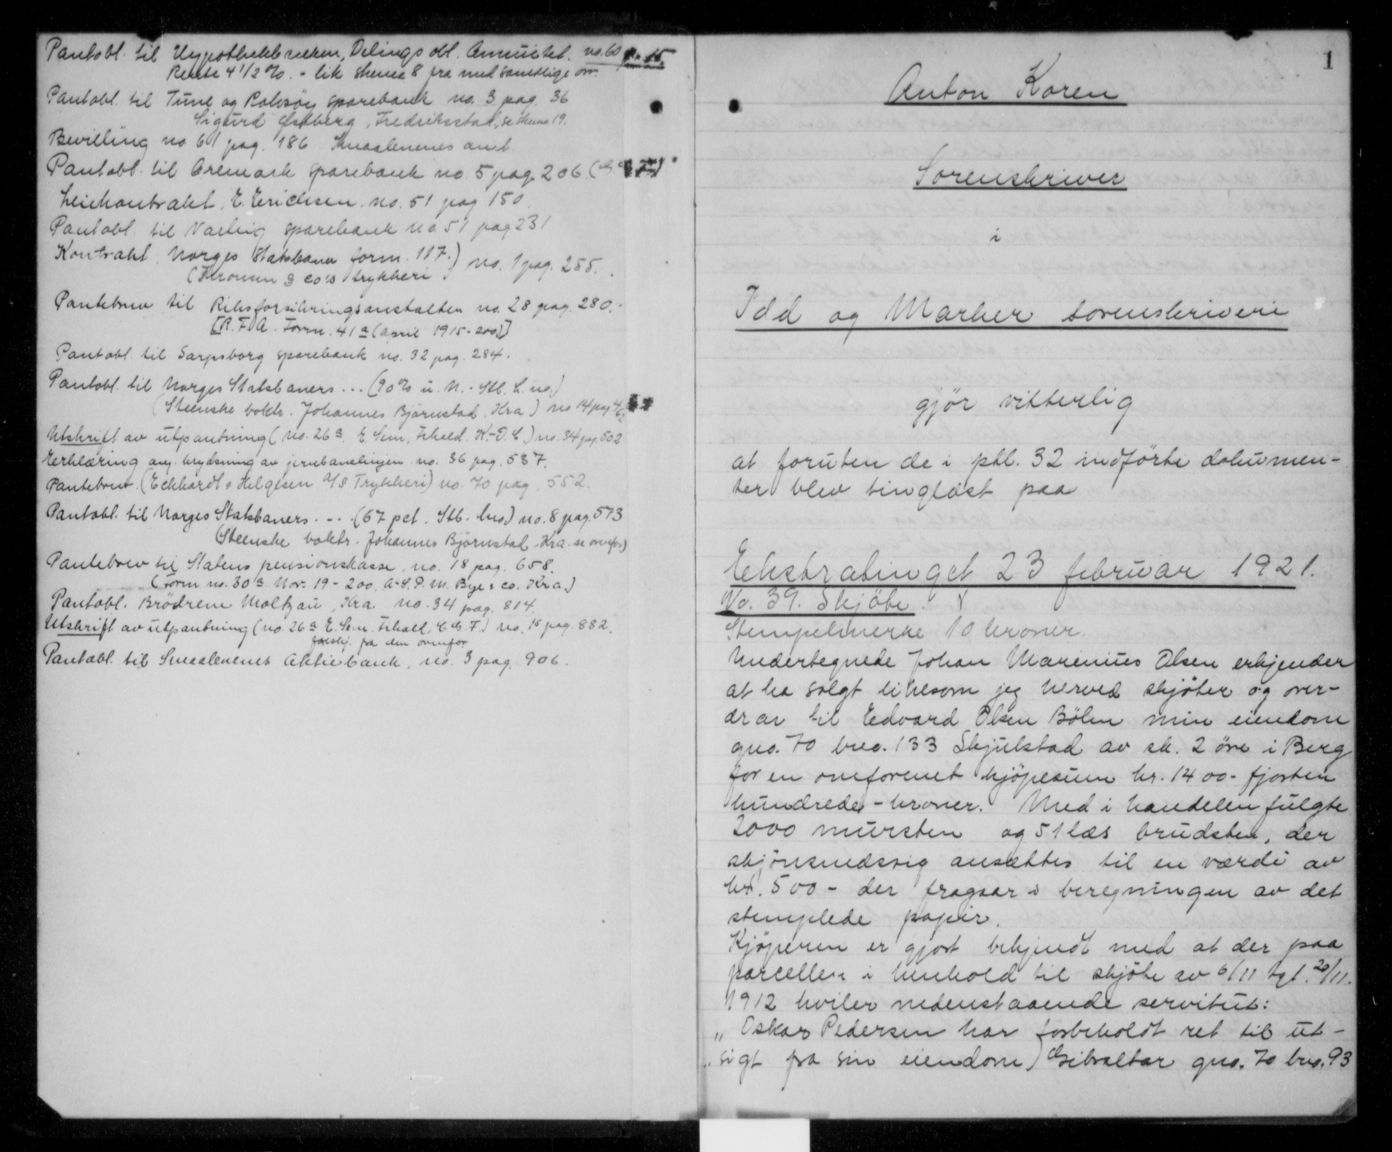 Pantobl. til Hypothekbanken, Delings obl. Annuitet. no. 60
Rente 4 1/2 %. - lik skema 8 fra med samtlige
Pantobl. til Tune og Rolvsöy sparebank no. 3 pag. 36
Sigurd Östberg, Fredriksstad, se skema 19.
Bevilling no 61 pag. 186 Smaalenenes amt.
Pantobl. til Aremark sparebank no. 5 pag. 206
Leiekontrakt. E. Erichsen. no. 51 pag 150.
Pantobl. til Varteig sparebank no 51 pag 231
Kontrakt. Norges Statsbaner form. 117.) no. 1 pag. 255.
(Aronsen & co's trykkeri
Pantebrev til Riksforsikringsanstalten no. 28 pag. 280.-
[R.F.A. Form. 41a (april 1915-2000)]
Pantobl. til Sarpsborg sparebank no. 32 pag. 284.
Pantobl. til Norges Statsbaners ... (90 % u. N. - Stb. L. no.)
(Steenske boktr. Johannes Björnstad. Kra) no 14 pag
Utskrift av utpantning (no. 26a. E. Sem, Fr.hald. K.-D. L.) no. 34 pag 502
Erklæring ang. krydsning av jernbanelinjen. no. 36 pag. 537.
Pantebrev (Eckhardt & Helgesen A/S Trykkeri) no. 70 pag. 552.
Pantobl. til Norges Statsbaners ... (67 pct. Stb. lns) no. 8 pag. 573
(Steenske boktr. Johannes Björnstad. Kra. se ovenfor)
Pantebrev til Statens pensionskasse, no. 18 pag. 658.
(Form no. 30a Nov. 19 - 200. A.S. P. M. Bye & co. Kra)
Pantobl. Brödrene Moltzau, Kra. no. 34 pag. 814.
Utskrift av utpantning (no. 26a E. Sem. Fr.hald, C. C. F.) no. 15 pag. 882.
forskj. fra den ovenfor
Pantobl. til Smaalenenes Aktiebank, no. 3 pag. 906.
1
Anton Koren
Sorenskriver
i
Idd og Marker sorenskriveri
gjör vitterlig
at foruten de i pbl. 32 indförte dokumen-
ter blev tinglæst paa
Ekstratinget 23 februar 1921.
No. 39. Skjöte.
Stempelmerke 10 kroner.
Undertegnede Johan Marenius Olsen erkjender
at ha solgt likesom jeg herved skjöter og over-
drar til Edvard Olsen Bölen min eiendom
gno. 70 bno. 133 Skjulstad av sk. 2 öre i Berg
for en omforenet kjöpesum kr. 1400 - fjorten
hundrede - kroner. Med i handelen fulgte
2000 mursten og 51 læs brudsten, der
skjönsmæssig ansættes til en værdi av
kr. 500 - der fragaar i beregningen av det
stemplede papir.
Kjöperen er gjort bekjendt med at der paa
parcellen i henhold til skjöte av 6/11 tgl. 20/11.
1912 hviler nedenstaaende servitut:
" Oskar Pedersen har forbeholdt ret til ut-
" sigt fra sin eiendom) Gibraltar gno. 70 bno. 93